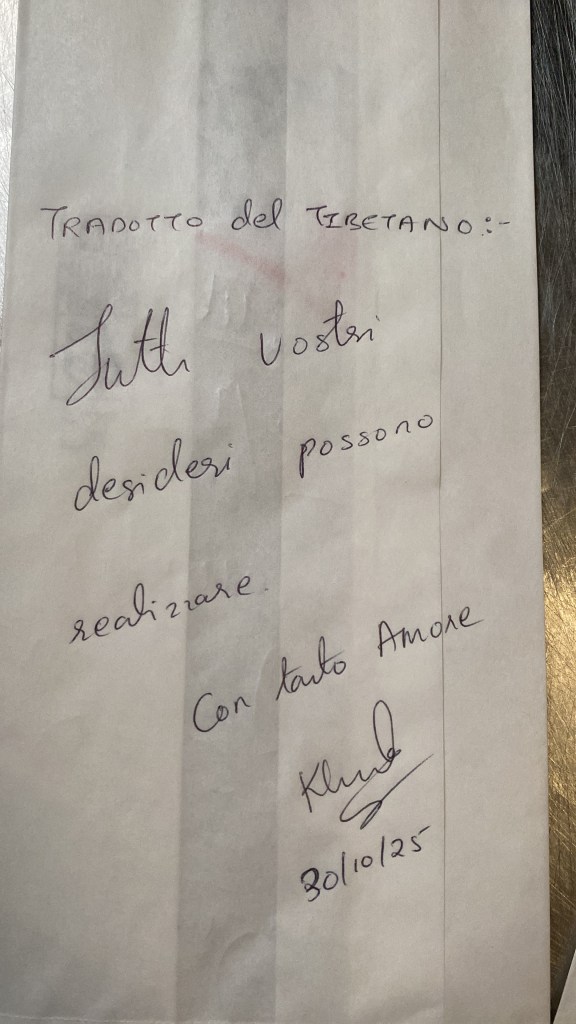 TRADOTTO del TIBETANO:-
Tutti vostri
desideri possono
realizzare.
Con tanto Amore
30/10/25